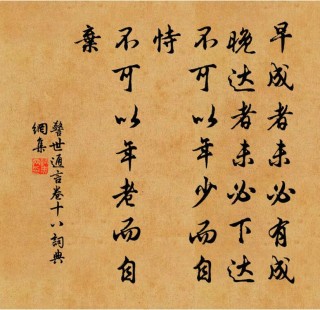 早成者未必有成
晚达者未必下达
不可以年少而自
恃
不可以年老而自
棄
警世通言卷十八詞典
網集